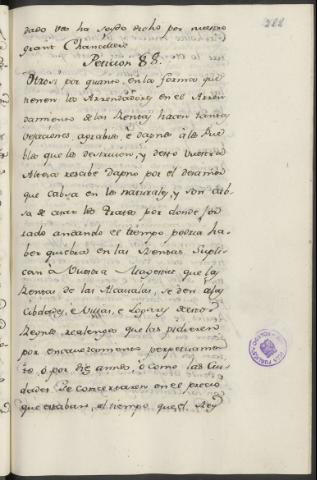 dado vos ha seydo dicho por nuestro
grant Chanceller.
Peticion 88.
Otrosi por quanto, en la forma que
tienen los Arrendadores en el Arren-
damiento de las Rentas, hacen tantas
vejaciones, agravios, e daños a los Pue-
blos que los destruien, y desto Vuestra
Alteza rescibe daño por el desamor
que cabsa en los naturales, y son cab-
sa de atar los tratos por donde for-
zado andando el tiempo podria ha-
ber quiebra en las Rentas Supli-
can a Vuestra Magestat que las
Rentas de las Alcavalas, se den a las
Cibdades, e Villas, e Logares destos
Reynos realengos que las pidieren
por encavezamiento perpetuamen-
te, o por diez annos, o como las Ciu-
dades se concertaren en el precio
que estaban, al tiempo que el Rey